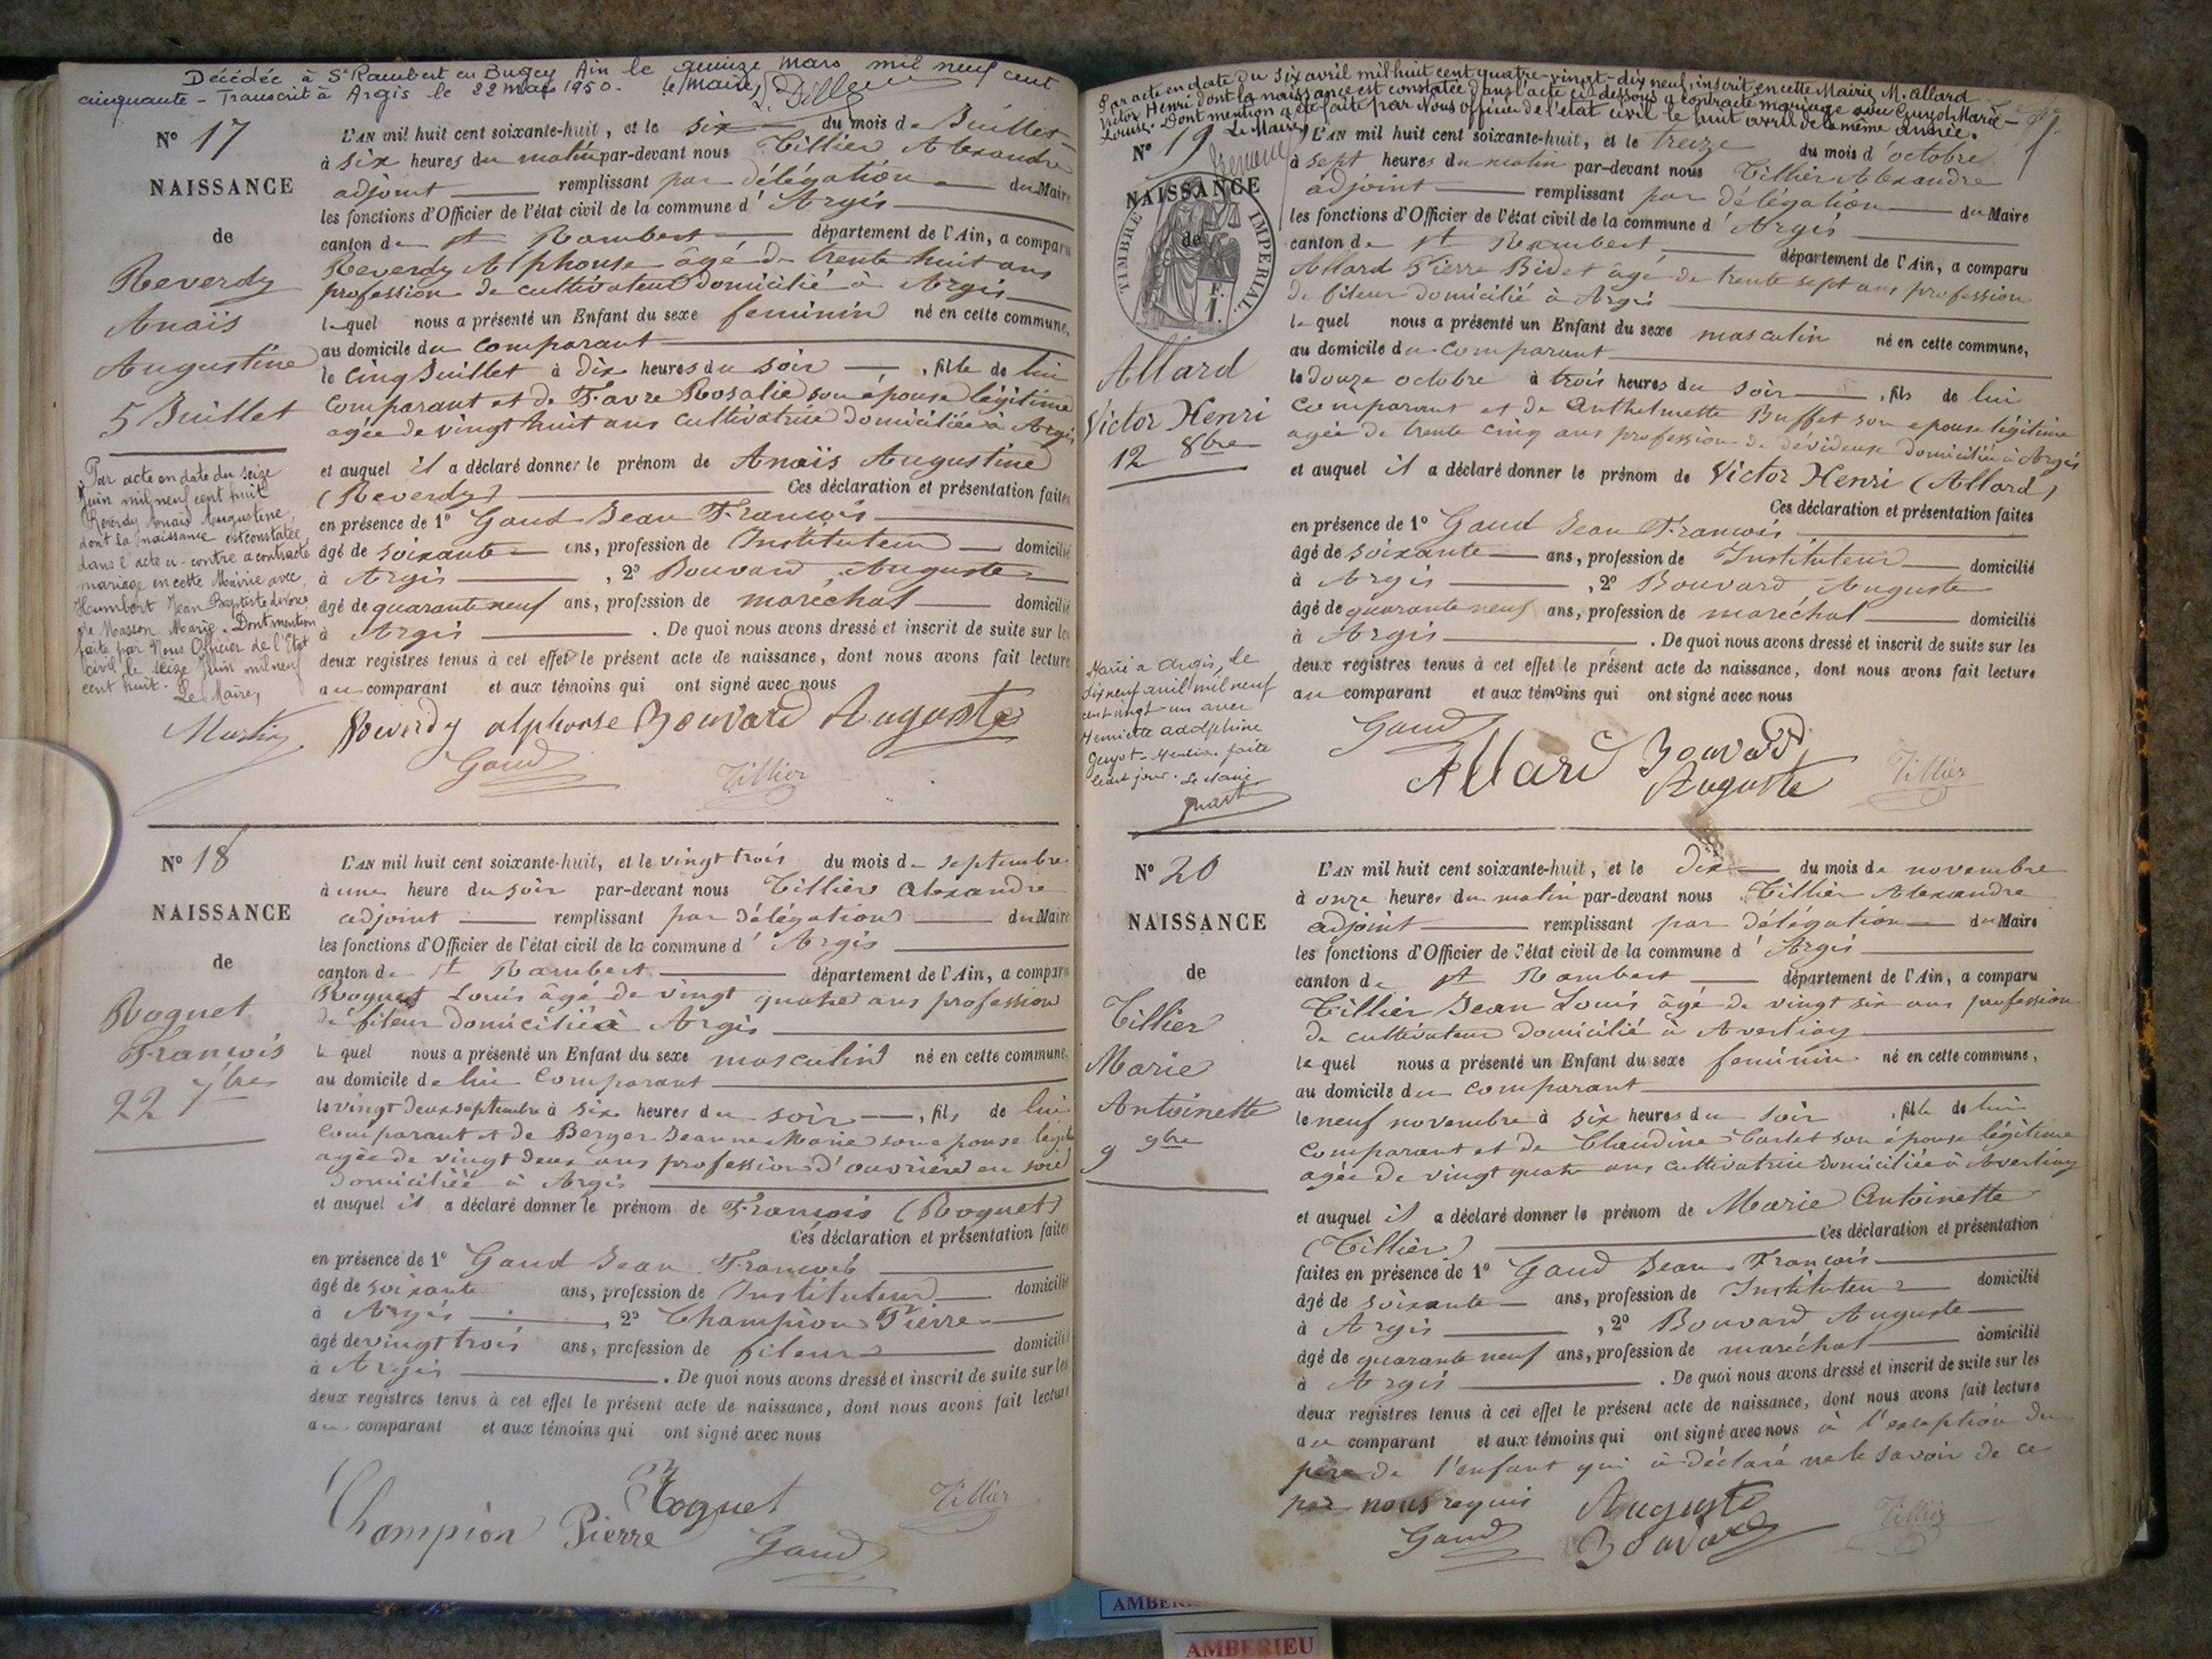 Décédée à St Rambert en Bugey Ain le quinze Mars mil neuf cent
cinquante - Transcrit à Argis le 22 Mars 1950. le Maire,
N° 17
NAISSANCE
de
Reverdy
Anaïs
Augustine
5 Juillet
Par acte en date du seize
Juin mil neuf cent huit
Reverdy Anaïs Augustine
dont la naissance est constatée
dans l'acte ci-contre a contracté
mariage en cette Mairie avec
Humbert Jean Baptiste divorcé
de Masson Marie. Dont mention
faite par Nous Officier de l'Etat
civil le seize Juin mil neuf
cent huit. Le Maire,
L'AN mil huit cent soixante-huit, et le six du mois de Juillet
à six heures du matin par-devant nous Tillier Alexandre
adjoint remplissant par délégation du Maire
les fonctions d'Officier de l'état civil de la commune d'Argis
canton de St Rambert département de l'Ain, a comparu
Reverdy Alphonse âgé de trente huit ans
profession de cultivateur domicilié à Argis
lequel nous a présenté un Enfant du sexe feminin né en cette commune,
au domicile du comparant
le cinq Juillet à dix heures du soir, fille de lui
comparant et de Favre Rosalie son épouse légitime
agée de vingt huit ans cultivatrice domiciliée à Argis
et auquel il a déclaré donner le prénom de Anaïs Augustine
(Reverdy) Ces déclaration et présentation faites
en présence de 1° Gaud Jean François
âgé de soixante ans, profession de Instituteur domicilié
à Argis, 2° Bouvard Auguste
âgé de quarante neuf ans, profession de maréchal domicilié
à Argis. De quoi nous avons dressé et inscrit de suite sur les
deux registres tenus à cet effet le présent acte de naissance, dont nous avons fait lecture
au comparant et aux témoins qui ont signé avec nous
Reverdy alphonse Bouvard Auguste
Gaud Tillier
N° 18
NAISSANCE
de
Roguet
François
22 7bre
L'AN mil huit cent soixante-huit, et le vingt trois du mois de septembre
à une heure du soir par-devant nous Tillier Alexandre
adjoint remplissant par délégation du Maire
les fonctions d'Officier de l'état civil de la commune d'Argis
canton de St Rambert département de l'Ain, a comparu
Roguet Louis âgé de vingt quatre ans profession
de fileur domicilié à Argis
lequel nous a présenté un Enfant du sexe masculin né en cette commune,
au domicile de lui comparant
le vingt deux septembre à six heures du soir, fils de lui
comparant et de Berger Jeanne Marie son epouse légit
agée de vingt deux ans profession d'ouvrière en soie
domiciliée à Argis
et auquel il a déclaré donner le prénom de François (Roguet)
Ces déclaration et présentation faites
en présence de 1° Gaud Jean François
âgé de soixante ans, profession de Instituteur domicilié
à Argis, 2° Champion Pierre
âgé de vingt trois ans, profession de fileur domicilié
à Argis. De quoi nous avons dressé et inscrit de suite sur les
deux registres tenus à cet effet le présent acte de naissance, dont nous avons fait lecture
au comparant et aux témoins qui ont signé avec nous
Roguet Tillier
Champion Pierre Gaud
Par acte en date du six avril mil huit cent quatre-vingt-dix neuf, inscrit en cette Mairie M. Allard
Victor Henri dont la naissance est constatée dans l'acte ci-dessous a contracté mariage avec Guyot Marie
Louise. Dont mention a été faite par Nous officier de l'état civil le huit avril de la même année.
Le Maire,
N° 19
NAISSANCE
de
TIMBRE IMPERIAL
F.
1.
Allard
Victor Henri
12 8bre
Marié à Argis, le
dix neuf avril mil neuf
cent vingt-un avec
Henriette Adolphine
Guyot - Mention faite
ledit jour. Le Maire
L'AN mil huit cent soixante-huit, et le treize du mois d'octobre
à sept heures du matin par-devant nous Tillier Alexandre
adjoint remplissant par délégation du Maire
les fonctions d'Officier de l'état civil de la commune d'Argis
canton de St Rambert département de l'Ain, a comparu
Allard Pierre Bidet âgé de trente sept ans profession
de fileur domicilié à Argis
lequel nous a présenté un Enfant du sexe masculin né en cette commune,
au domicile du comparant
le douze octobre à trois heures du soir, fils de lui
comparant et de Anthelmette Buffet son epouse légitime
agée de trente cinq ans profession de devideuse domiciliée à Argis
et auquel il a déclaré donner le prénom de Victor Henri (Allard)
Ces déclaration et présentation faites
en présence de 1° Gaud Jean François
âgé de soixante ans, profession de Instituteur domicilié
à Argis, 2° Bouvard Auguste
âgé de quarante neuf ans, profession de maréchal domicilié
à Argis. De quoi nous avons dressé et inscrit de suite sur les
deux registres tenus à cet effet le présent acte de naissance, dont nous avons fait lecture
au comparant et aux témoins qui ont signé avec nous
Gaud
Allard Bouvard Auguste Tillier
N° 20
NAISSANCE
de
Tillier
Marie
Antoinette
9 9bre
L'AN mil huit cent soixante-huit, et le dix du mois de novembre
à onze heures du matin par-devant nous Tillier Alexandre
adjoint remplissant par délégation du Maire
les fonctions d'Officier de l'état civil de la commune d'Argis
canton de St Rambert département de l'Ain, a comparu
Tillier Jean Louis âgé de vingt six ans profession
de cultivateur domicilié à Averliaz
lequel nous a présenté un Enfant du sexe feminin né en cette commune,
au domicile du comparant
le neuf novembre à six heures du soir, fille de lui
comparant et de Claudine Carlet son épouse légitime
agée de vingt quatre ans cultivatrice domiciliée à Averliaz
et auquel il a déclaré donner le prénom de Marie Antoinette
(Tillier) Ces déclaration et présentation
faites en présence de 1° Gaud Jean François
âgé de soixante ans, profession de Instituteur domicilié
à Argis, 2° Bouvard Auguste
âgé de quarante neuf ans, profession de maréchal domicilié
à Argis. De quoi nous avons dressé et inscrit de suite sur les
deux registres tenus à cet effet le présent acte de naissance, dont nous avons fait lecture
au comparant et aux témoins qui ont signé avec nous à l'exception du
père de l'enfant qui à déclaré ne le savoir de ce
par nous requis Auguste
Gaud Bouvard Tillier
AMBERIEU